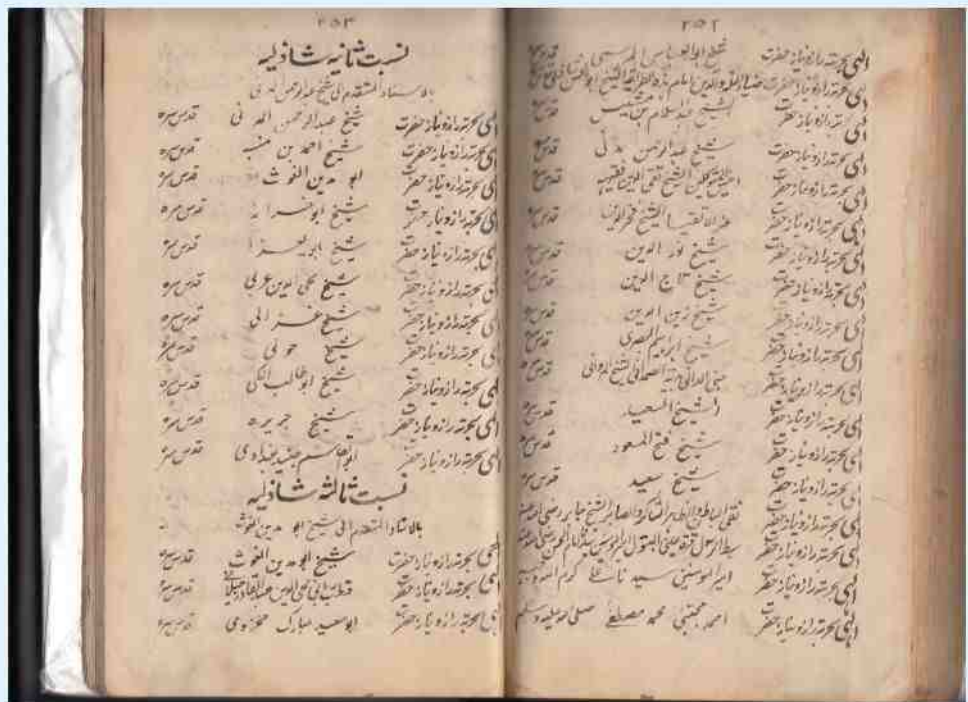 ٢٥٢
الهی بحرمته راز و نیاز حضرت شیخ ابوالعباس المرسی قدس سره
الهی بحرمته راز و نیاز حضرت الشیخ ابوالحسن
الهی بحرمته راز و نیاز حضرت الشیخ عبدالسلام بن مشیش قدس سره
الهی بحرمته راز و نیاز حضرت شیخ عبدالرحمن مدنی قدس سره
الهی بحرمته راز و نیاز حضرت الشیخ تقی الدین فقیر قدس سره
الهی بحرمته راز و نیاز حضرت الشیخ فخر الدین قدس سره
الهی بحرمته راز و نیاز حضرت شیخ نور الدین قدس سره
الهی بحرمته راز و نیاز حضرت شیخ تاج الدین قدس سره
الهی بحرمته راز و نیاز حضرت شیخ زین الدین قدس سره
الهی بحرمته راز و نیاز حضرت شیخ ابراهیم البصری قدس سره
الهی بحرمته راز و نیاز حضرت قدس سره
الهی بحرمته راز و نیاز حضرت الشیخ السعید قدس سره
الهی بحرمته راز و نیاز حضرت شیخ فتح المسعود قدس سره
الهی بحرمته راز و نیاز حضرت شیخ سعید قدس سره
الهی بحرمته راز و نیاز حضرت الشیخ جابر رضی الله عنه
الهی بحرمته راز و نیاز حضرت سبط الرسول قرة عینی البتول
الهی بحرمته راز و نیاز حضرت امیر المومنین سیدنا علی کرم الله وجهه
الهی بحرمته راز و نیاز حضرت احمد مجتبی محمد مصطفی صلی الله علیه وسلم
٢٥٣
نسبت ثانیه شاذلیه
بالاسناد المتقدم الی شیخ عبدالرحمن المدنی
الهی بحرمته راز و نیاز حضرت شیخ عبدالرحمن المدنی قدس سره
الهی بحرمته راز و نیاز حضرت شیخ احمد بن قدس سره
الهی بحرمته راز و نیاز حضرت ابو مدین الغوث قدس سره
الهی بحرمته راز و نیاز حضرت شیخ قدس سره
الهی بحرمته راز و نیاز حضرت شیخ ابو یعزا قدس سره
الهی بحرمته راز و نیاز حضرت شیخ محی الدین عربی قدس سره
الهی بحرمته راز و نیاز حضرت شیخ غزالی قدس سره
الهی بحرمته راز و نیاز حضرت شیخ جوینی قدس سره
الهی بحرمته راز و نیاز حضرت شیخ ابوطالب المکی قدس سره
الهی بحرمته راز و نیاز حضرت شیخ جریره قدس سره
الهی بحرمته راز و نیاز حضرت ابوالقاسم جنید بغدادی قدس سره
نسبت ثالثه شاذلیه
بالاسناد المتقدم الی شیخ ابو مدین الغوث
الهی بحرمته راز و نیاز حضرت شیخ ابو مدین الغوث قدس سره
الهی بحرمته راز و نیاز حضرت محی الدین عبدالقادر جیلانی قدس سره
الهی بحرمته راز و نیاز حضرت ابوسعید مبارک مخزومی قدس سره